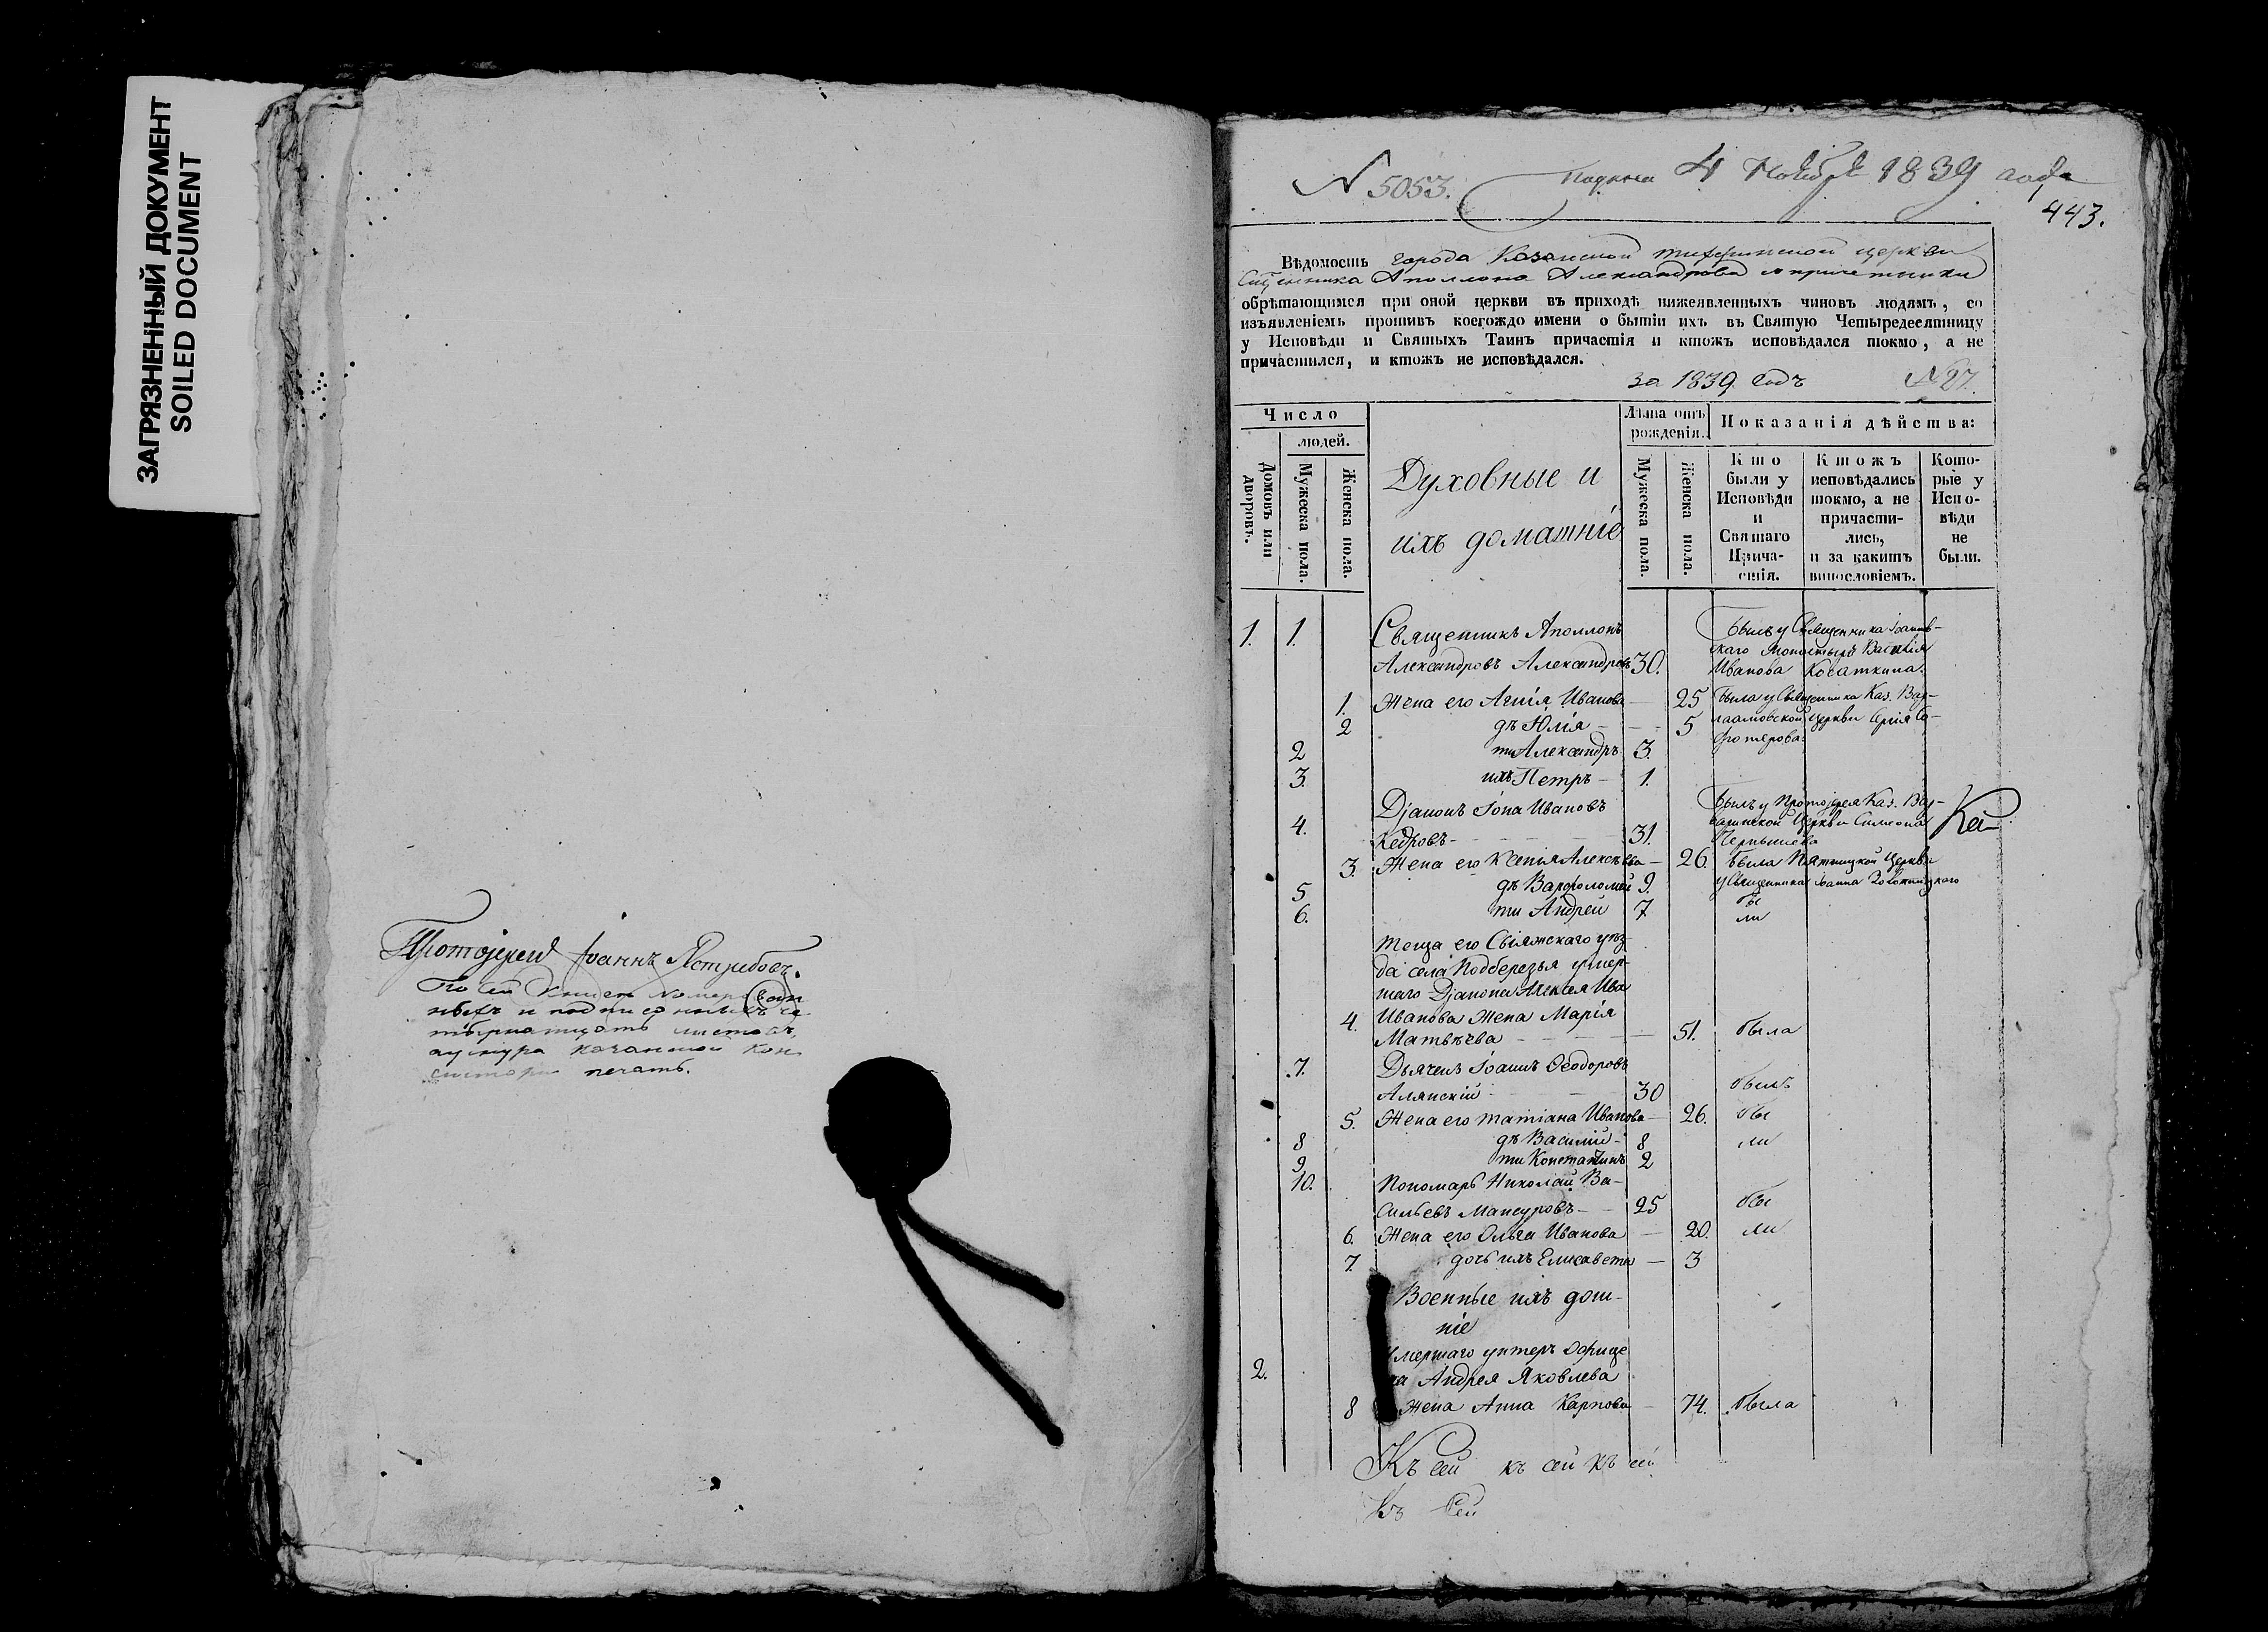 ЗАГРЯЗНЕННЫЙ ДОКУМЕНТ
SOILED DOCUMENT
Протоіерей Іоаннъ Ястребовъ.
По сей книге номерован
ныхъ и подписанныхъ че
тырнатцать листовъ,
Казанской Кон
систори печать.
N 5053. Подана 4 Ноября 1839 года
443.
Вѣдомость города Казанской тихвинской церкви
Священника Аполлона Александрова с причетники
обрѣтающимся при оной церкви въ приходѣ нижеявленныхъ чиновъ людямъ, со
изъявленіемъ противъ коегождо имени о бытіи ихъ въ Святую Четыредесятницу
у Исповѣди и Святыхъ Таинъ причастія и ктожъ исповѣдался токмо, а не
причастился, и ктожъ не исповѣдался.
за 1839 годъ N 27.
Число
людей.
Домовъ или дворовъ.
Мужеска пола.
Женска пола.
Духовные и
ихъ домашніе
Лѣта отъ
рожденія.
Мужеска пола.
Женска пола.
Показанія дѣйства:
Кто
были у
Исповѣди
и
Святаго
Прича-
стія.
Ктожъ
исповѣдались
токмо, а не
причасти-
лись,
и за какимъ
винословіемъ.
Кото-
рые у
Испо-
вѣди
не
были.
1. 1. Священникъ Аполлонъ Былъ у Священника Іоаннов-
скаго Монастыря Василія
Александровъ Александровъ 30. Иванова Косаткина.
1. Жена его Агнія Иванова — 25 Была у Священника Каз. Вар-
2 дѣ Юлія — 5 лаамовской церкви
2 ти Александръ 3.
3. ихъ Петръ — 1.
Діаконъ Іона Ивановъ Былъ у Протоіерея Каз. Вар-
4. варинской Церкви Симеона
Кедровъ — 31. Чернышева
3. Жена его Ксенія Алексѣева — 26. была Пятницкой Церкви
5 дѣ Варѳоломей 9. у Священника Іоанна
6. ти Андрей 7 бы
ли
Теща его Свіяжскаго уѣз
да села Подберезья умер-
шаго Діакона Алексея Ива
4. Иванова Жена Марія
Матвѣева — 51. была
7. Дьячекъ Іоаннъ Ѳеодоровъ
Алянскій 30 былъ
5. Жена его Татіана Иванова — 26. бы
8 дѣ Василій — 8 ли
9 ти Константинъ 2
10. Пономарь Николай Ва-
сильевъ Мансуровъ — 25 бы
6. Жена его Ольга Иванова — 20. ли
7. дочь ихъ Елисавета — 3
Военные ихъ дом-
ніе
умершаго унтеръ Офице
2. ра Андрея Яковлева
8 Жена Анна Карпова — 74. была
Къ сей къ сей къ сей
Къ сей